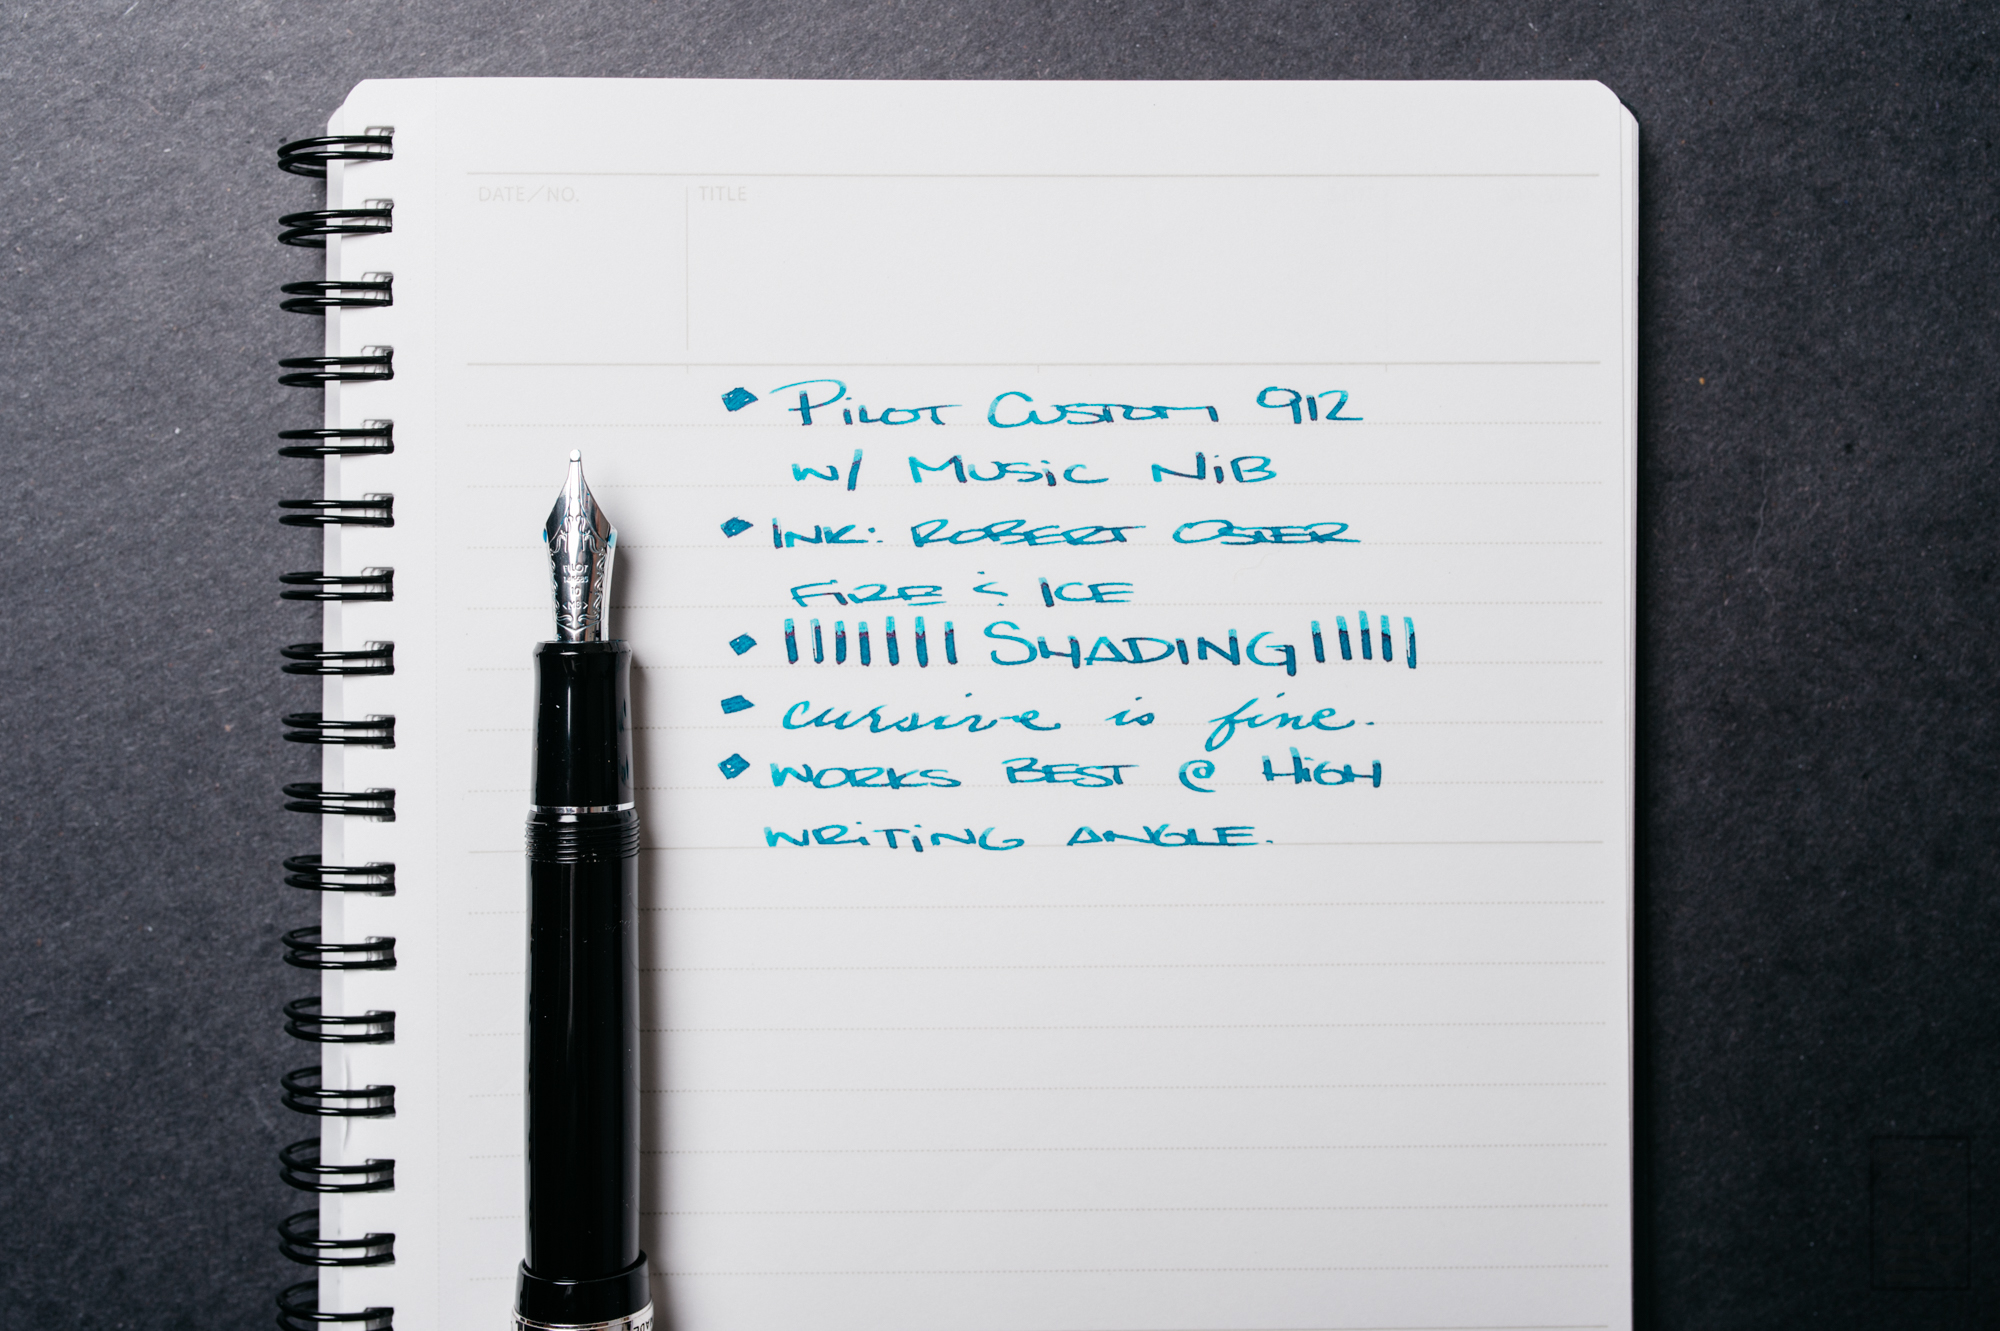 DATE/NO. TITLE
PILOT CUSTOM 912
W/ MUSIC NIB
INK: ROBERT OSTER
FIRE & ICE
SHADING
cursive is fine.
WORKS BEST @ HIGH
WRITING ANGLE.
PILOT